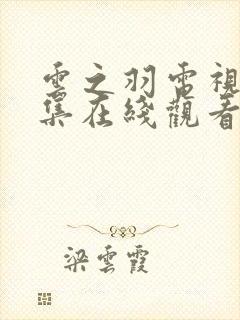 雲之羽電視
集在綫觀看
梁雲霞